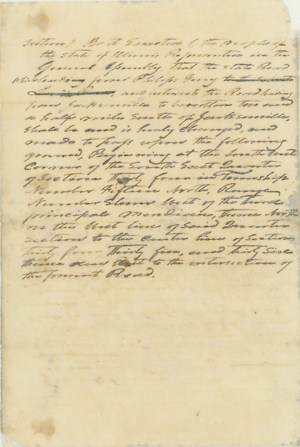 Section 1 Be it Enacted by the People of
the State of Illinois Represented in the
General Assembly That the State Road
leading from Philips Ferry
and intersects the Road leading
from Jacksonville to Carrollton two and
a half miles South of Jacksonville,
shall be and is hereby changed, and
made to pass upon the following
ground, Beginning at the South West
Corner of the South East Quarter
of Section Thirty four in Township
Number Fifteen North, Range
Number Eleven West of the third
principal Meridian, thence North
on the West line of Said Quarter
section to the center line of Sections
thirty four Thirty five, and thirty Six
thence due East to the intersection of
the present Road.